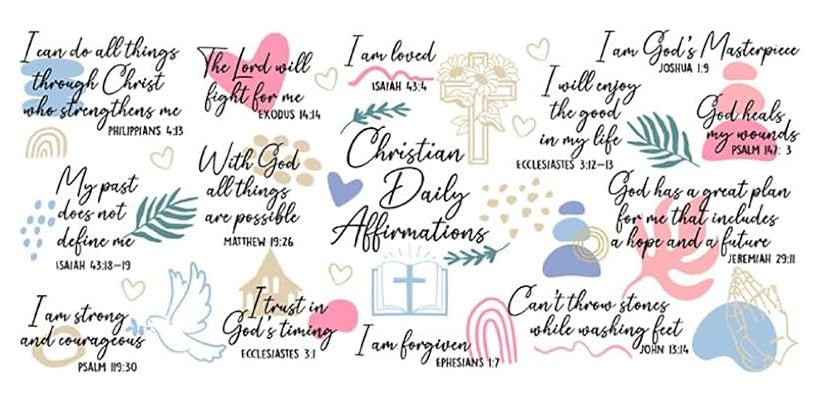 I can do all things
through Christ
who strengthens me
PHILIPPIANS 4:13
The Lord will
fight for me
EXODUS 14:14
I am loved
ISAIAH 43:4
I am God's Masterpiece
JOSHUA 1:9
I will enjoy
the good
in my life
ECCLESIASTES 3:12-13
God heals
my wounds
PSALM 147: 3
My past
does not
define me
ISAIAH 43:18-19
With God
all things
are possible
MATTHEW 19:26
Christian
Daily
Affirmations
God has a great plan
for me that includes
a hope and a future
JEREMIAH 29:11
I am strong
and courageous
PSALM 119:30
I trust in
God's timing
ECCLESIASTES 3:1
I am forgiven
EPHESIANS 1:7
Can't throw stones
while washing feet
JOHN 13:14